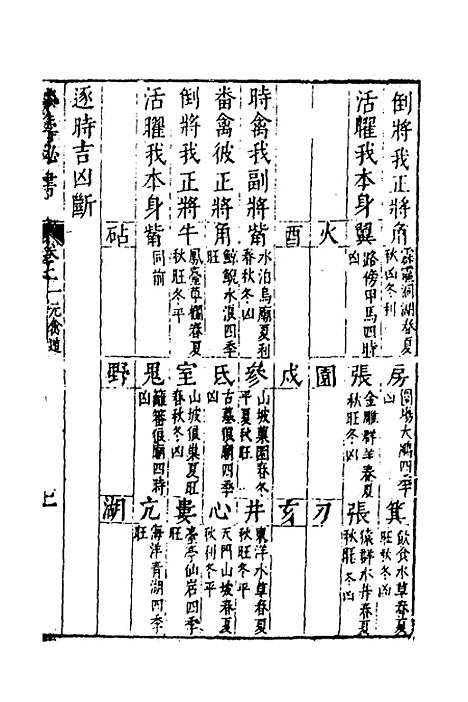 倒將我正將角 霹靂洞湖春夏秋凶冬利 房 圍場大鴻四季凶 箕 飲食水草春夏旺秋冬凶
活曜我本身翼 路傍甲馬四時凶 張 金雕群羊春夏秋旺冬凶 張 猿群水井春夏秋旺冬凶
火 圍 刃
酉 戌 亥
時禽我副將觜 水泊烏廟夏利春秋冬凶 參 山坡菓園春冬平夏秋旺 井 東洋水草春夏秋旺冬平
畨禽彼正將角 鯨鯢水浪四季旺 氐 古墓偎廟四季凶 心 天門山坡春夏秋利冬平
倒將我正將牛 鳳臺草欄春夏秋旺冬平 室 山坡偎巢夏旺春秋冬凶 婁 臺亭仙岩四季旺
活曜我本身觜 同前 鬼 籬畨偎廟四時凶 亢 海洋青湖四季旺
砧 野 湖
逐時吉凶斷
秘書 卷之 元禽遁 上